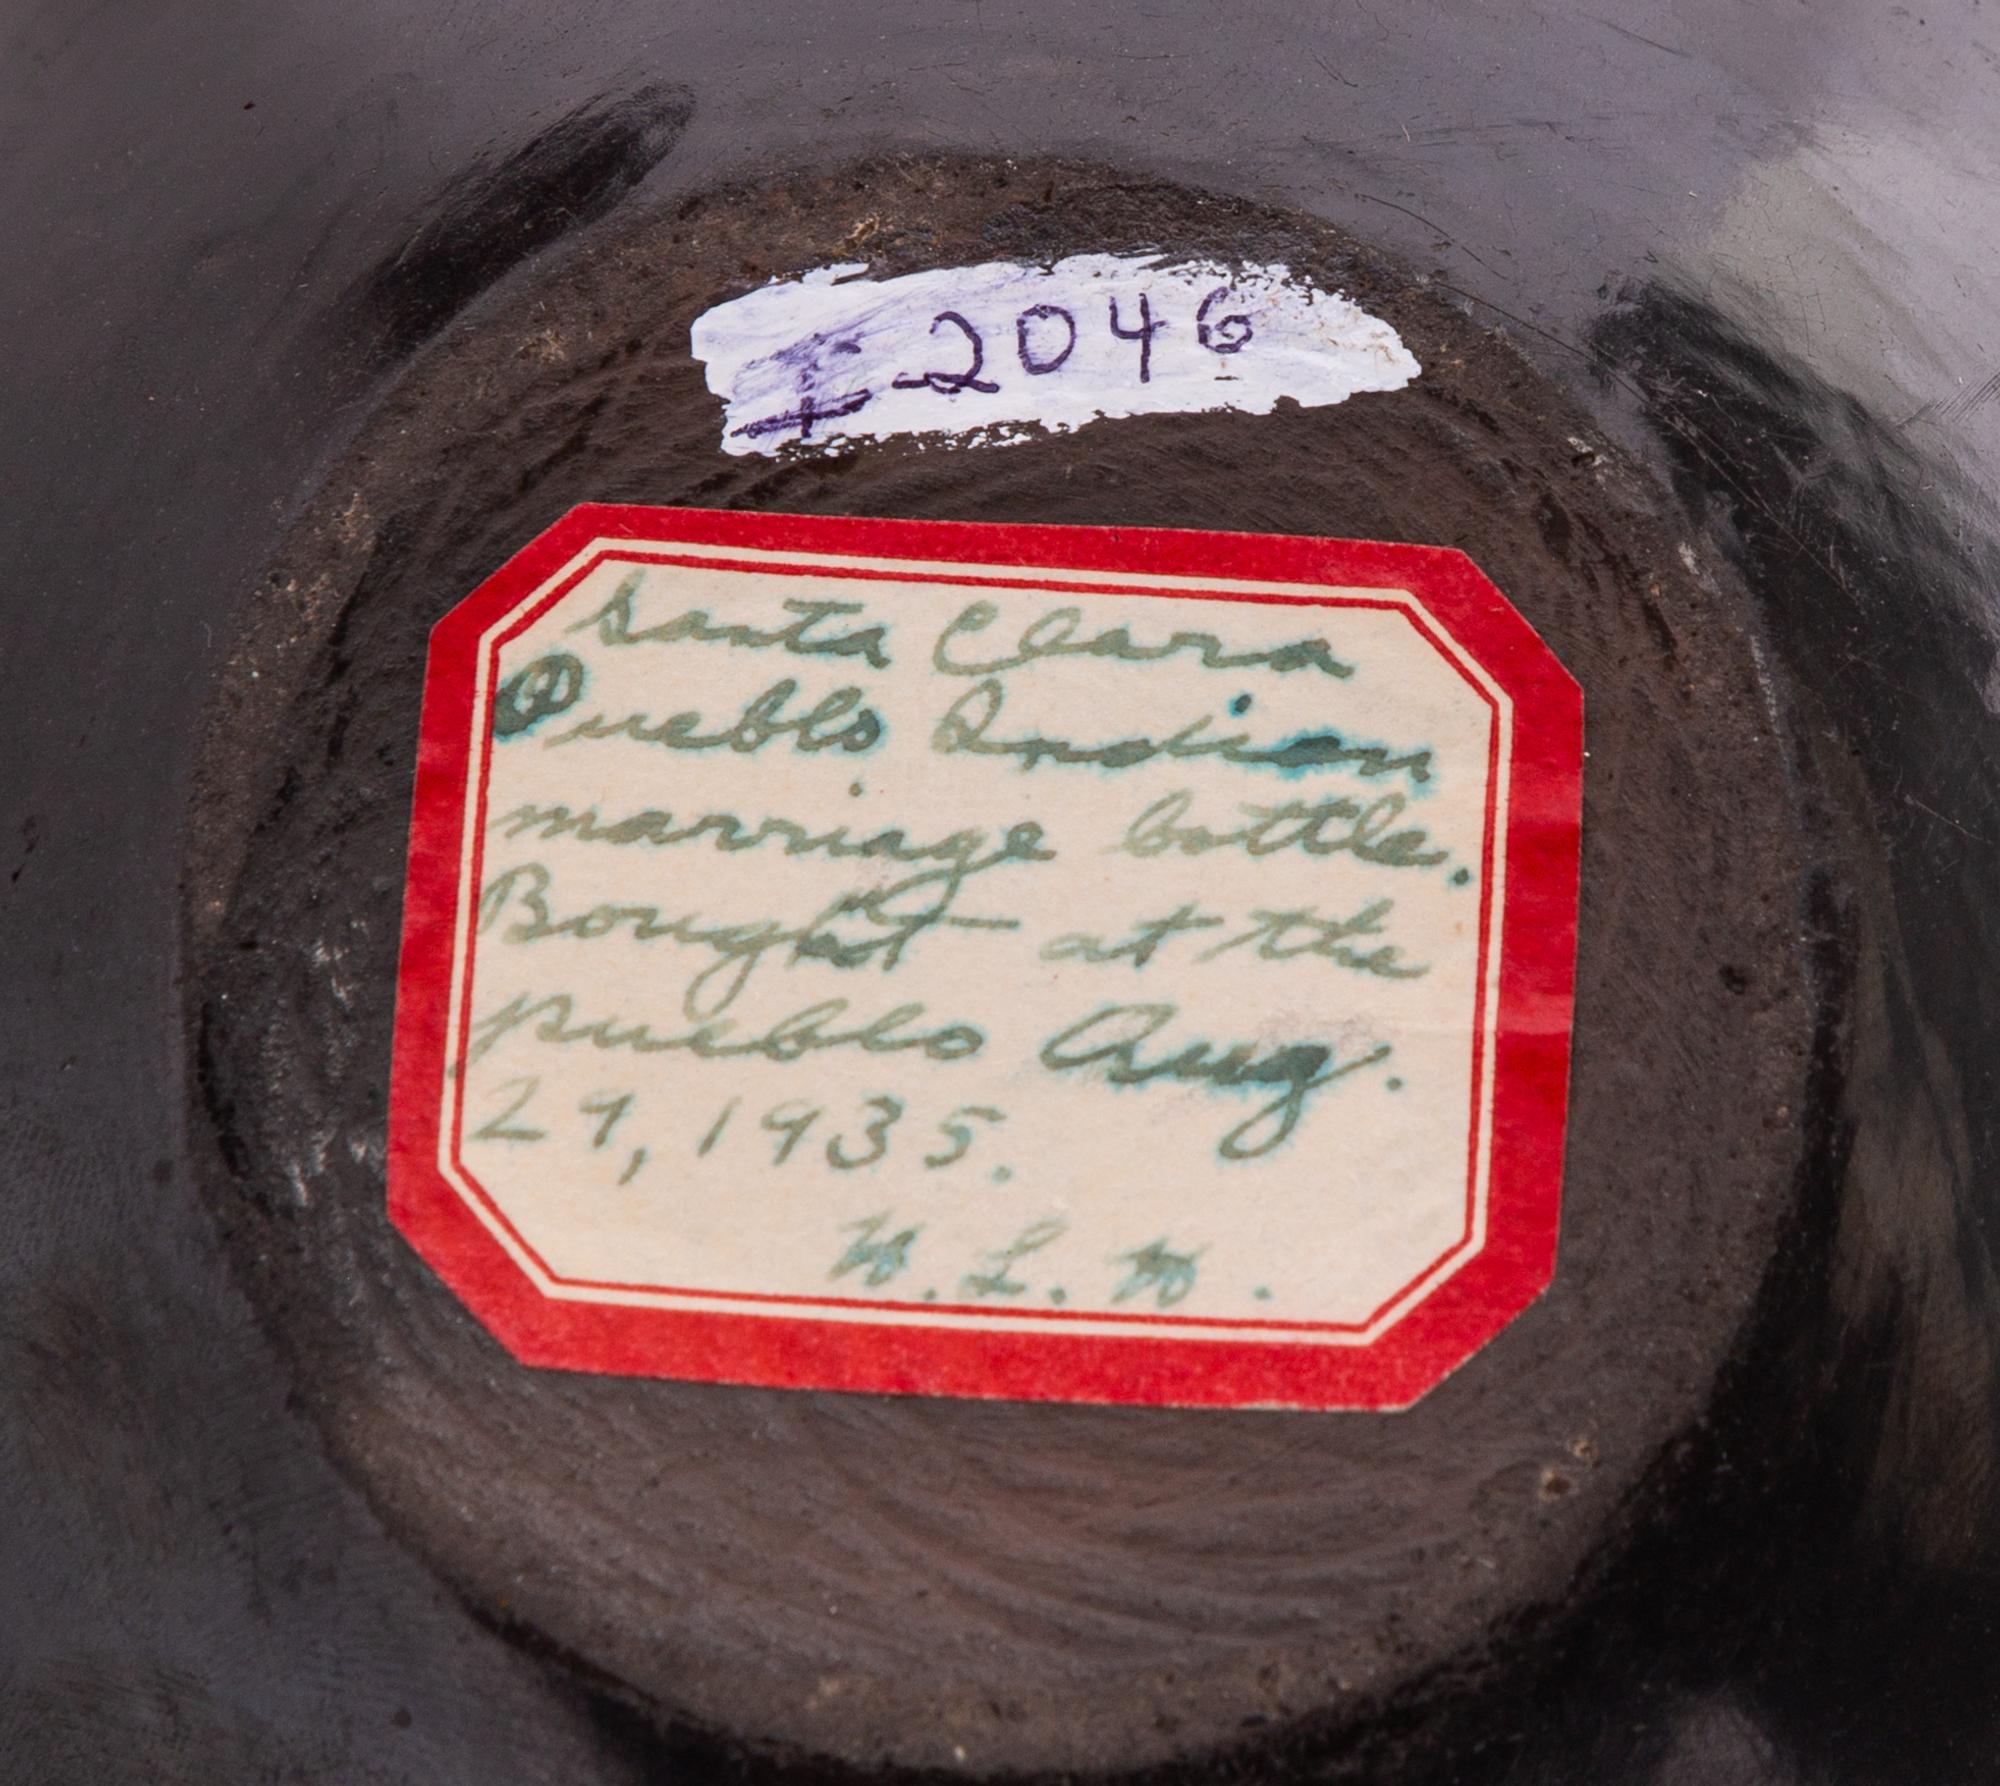 I 2046
Santa Clara
Pueblo Indian
marriage bottle.
Bought at the
pueblo Aug.
29, 1935.
W. L. W.